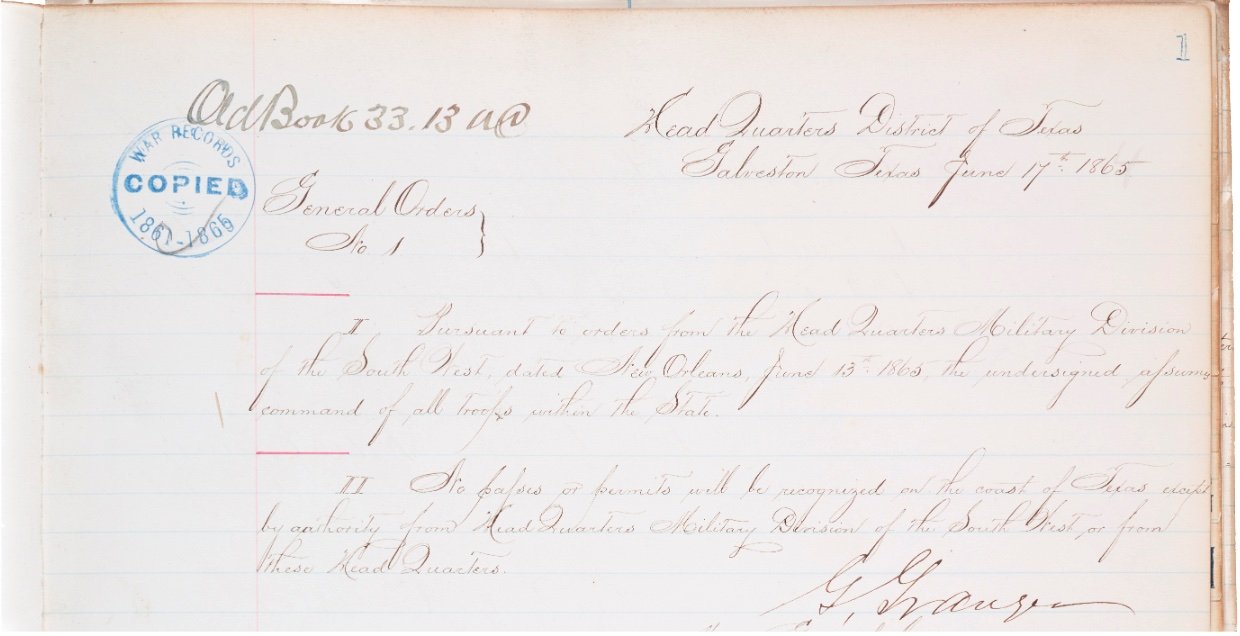 1
Old Book 33. 13 AC
Head Quarters District of Texas
Galveston Texas June 17th 1865
WAR RECORDS
COPIED
1861-1865
General Orders
No. 1
I Pursuant to orders from the Head Quarters Military Division
of the South West, dated New Orleans, June 13th 1865, the undersigned assumes
command of all troops within the State.
II No passes or permits will be recognized on the coast of Texas except
by authority from Head Quarters Military Division of the South West or from
these Head Quarters.
G. Granger